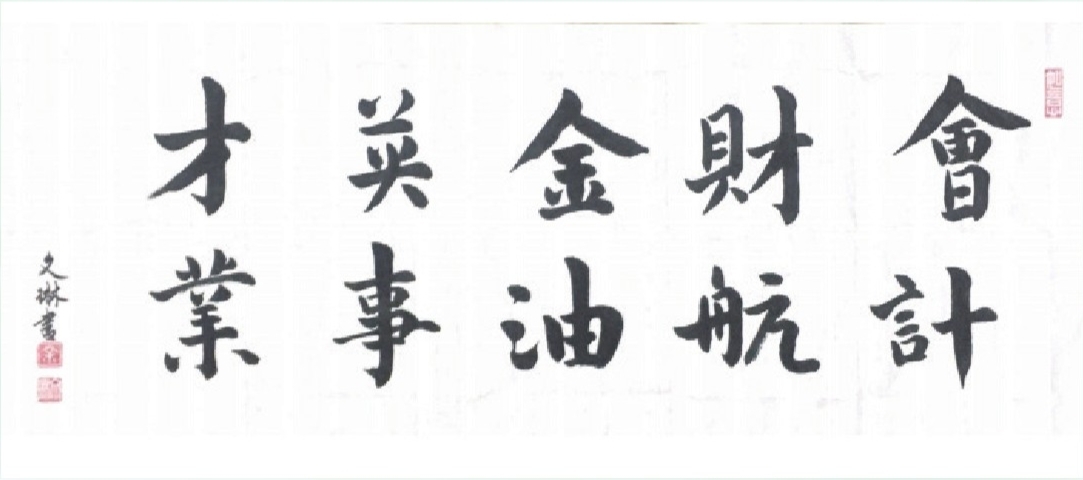 會財金英才
計航油事業
文琳書